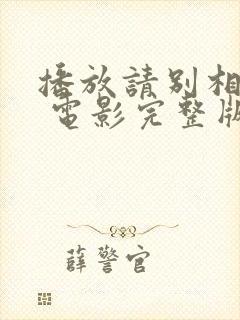 播放請別相
電影完整版
薛警官